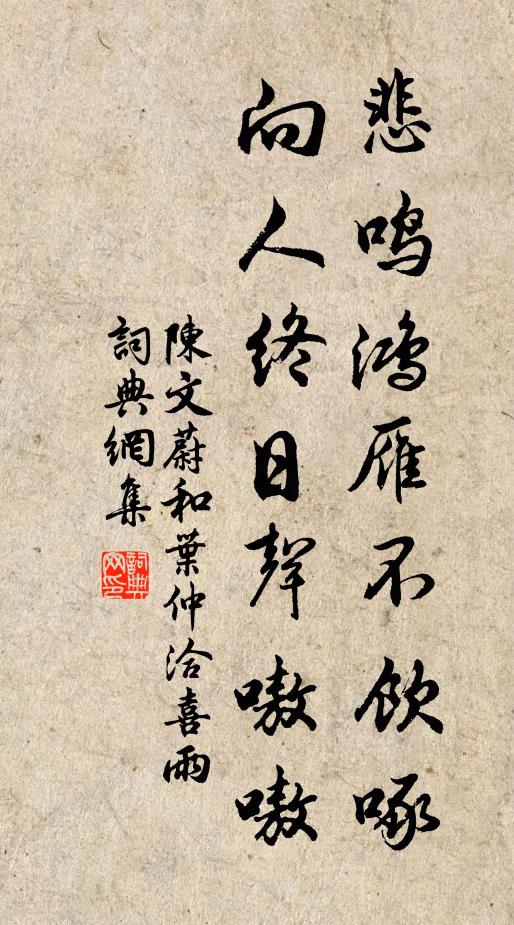 悲鸣鸿雁不饮啄
向人终日聲嗷嗷
陳文蔚和葉仲洽喜雨
詞典網集
詞典网印